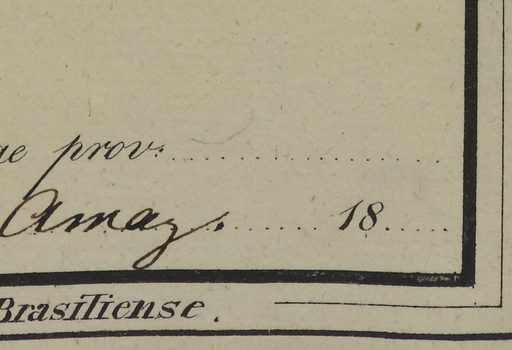 ae prov: ....................
Amaz. ........ 18......
Brasiliense.